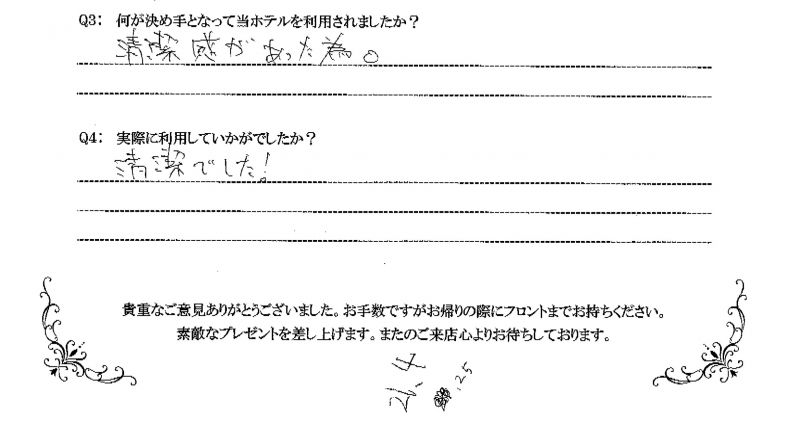 Q3: 何が決め手となって当ホテルを利用されましたか？
清潔感があった為。
Q4: 実際に利用していかがでしたか？
清潔でした!
貴重なご意見ありがとうございました。お手数ですがお帰りの際にフロントまでお持ちください。
素敵なプレゼントを差し上げます。またのご来店心よりお待ちしております。
21.4
.25